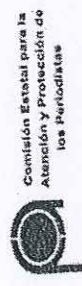 Comisión Estatal para la
Atención y Protección de
los Periodistas